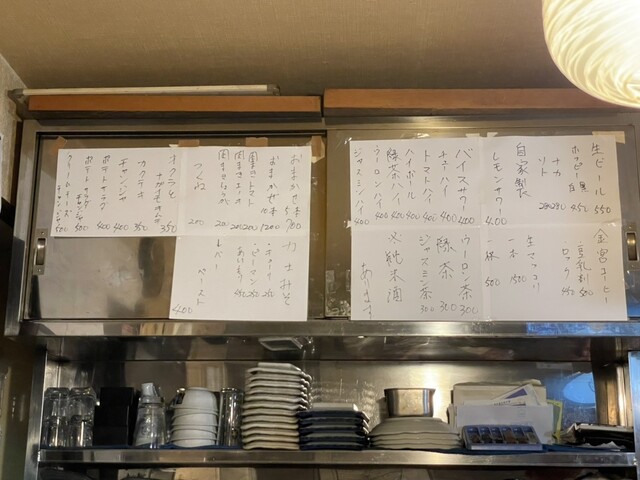 生ビール 550
ホッピー 白 黒 450
ナカ 250
ソト 250
自家製
レモンサワー 400
バイスサワー 400
チューハイ 400
トマトハイ 400
ハイボール 400
緑茶ハイ 400
ウーロンハイ 400
ジャスミンハイ 400
豆乳割 500
ロック 450
生マッコリ
一本 1500
一杯 500
ウーロン茶 300
緑茶 300
ジャスミン茶 300
純米酒
あります。
おまかせ5本 700
おまかせ 1200
つくね 200
オクラと
ナガイモのわさび 350
カクテキ 350
チャンジャ 400
ポテトサラダ 400
ポテトサラダ
チャンジャ 500
クリームチーズ
チャンジャ 500
ガツみそ
・キューリ 250
・ピーマン 250
あいもり 450
レバー
ペースト
400